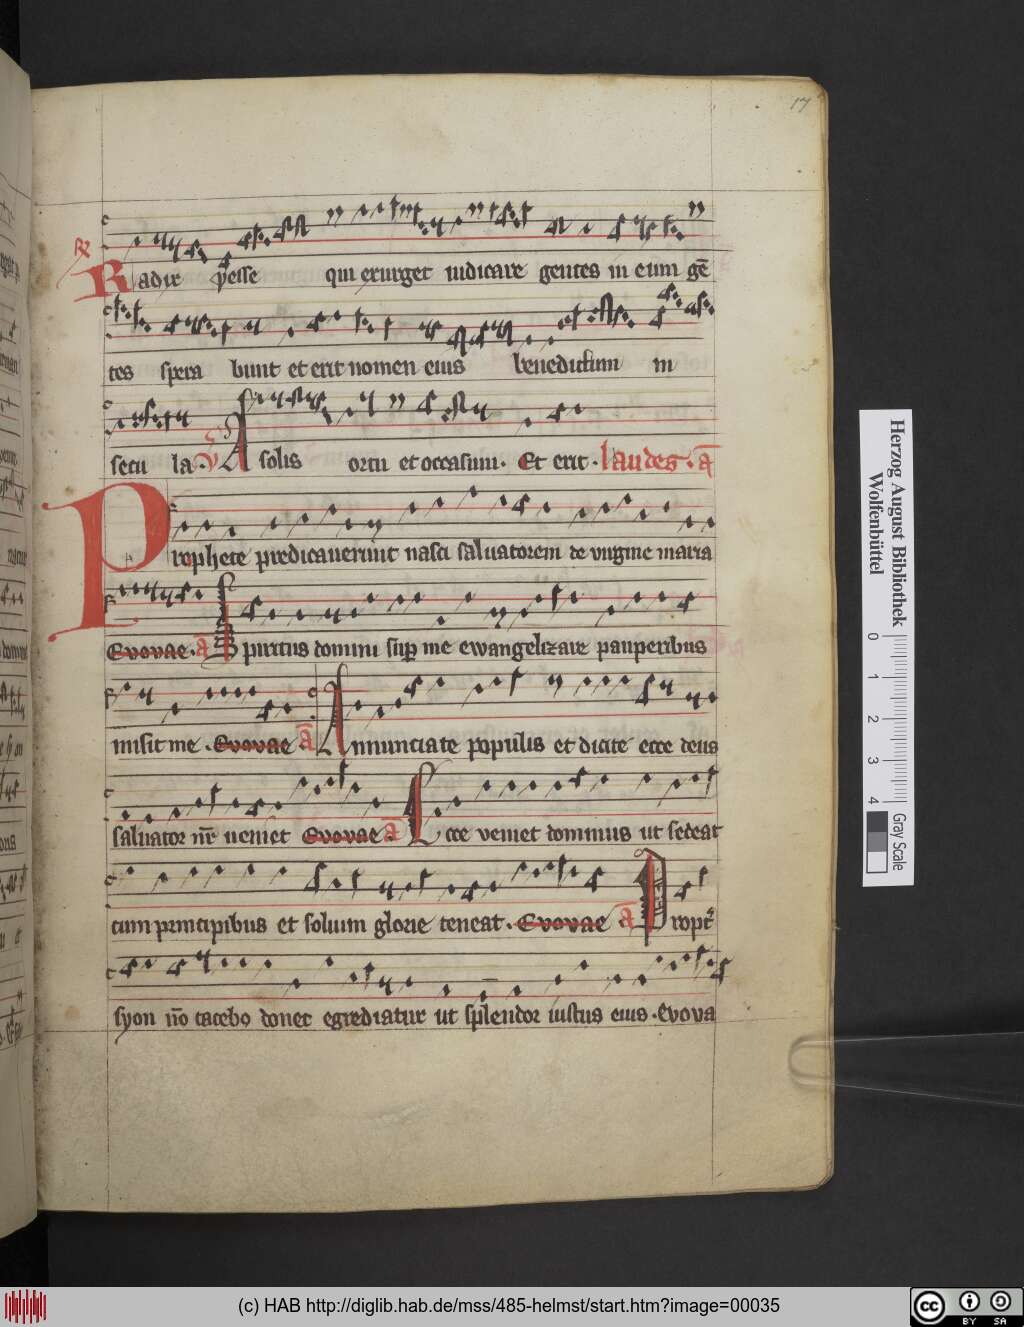 17
R
Radix yesse qui exurget iudicare gentes in eum gē
tes spera bunt et erit nomen eius benedictum in
secu la. V A solis ortu et occasum. Et erit. laudes. a
Prophete predicauerunt nasci saluatorem de virgine maria
Evovae. a Spiritus domini sup me ewangelizare pauperibus
misit me. Evovae a Annunciate populis et dicite ecce deus
saluator nr̄ ueniet Evovae a Ecce veniet dominus ut sedeat
cum principibus et solium glorie teneat. Evovae a Propt
syon nō tacebo donec egrediatur ut splendor iustus eius. Evova
Herzog August Bibliothek
Wolfenbüttel
0 1 2 3 4
Gray Scale
(c) HAB http://diglib.hab.de/mss/485-helmst/start.htm?image=00035
cc BY SA